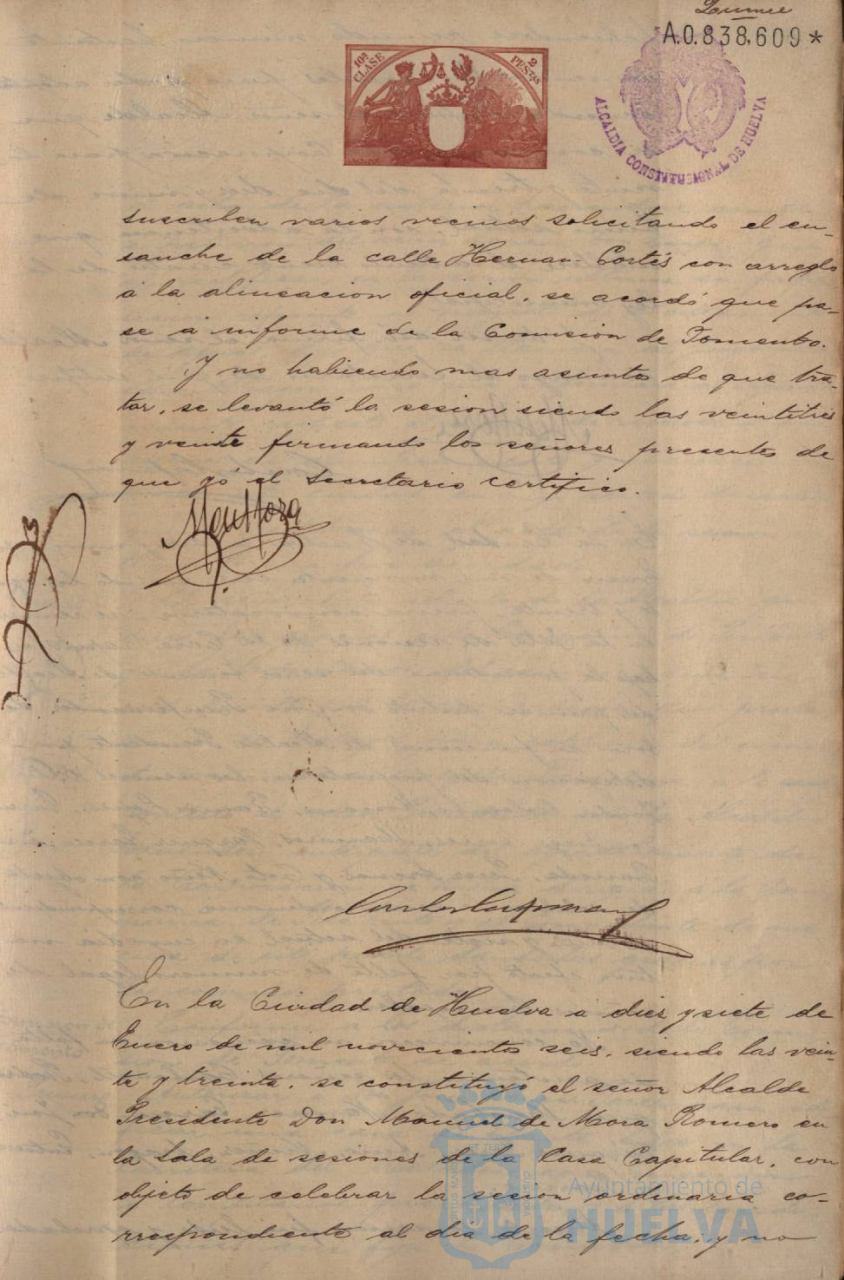 A.0.838,609*
10ª CLASE
2 PESTAS
ALCALDIA CONSTITUCIONAL DE HUELVA
suscriben varios vecinos solicitando el en-
sanche de la calle Hernan-Cortés con arreglo
á la alineacion oficial, se acordó que pa-
se á informe de la Comisión de Fomento.
Y no habiendo mas asuntos de que tra-
tar, se levantó la sesion siendo las veintitres
y veinte firmando los señores presentes de
que yó el Secretario certifico.
En la Ciudad de Huelva á diez y siete de
Enero de mil novecientos seis, siendo las vein-
te y treinta, se constituyó el señor Alcalde
Presidente Don Manuel de Mora Romero en
la Sala de sesiones de la Casa Capitular, con
objeto de celebrar la sesion ordinaria co-
rrespondiente al dia de la fecha, y no
Ayuntamiento de
HUELVA